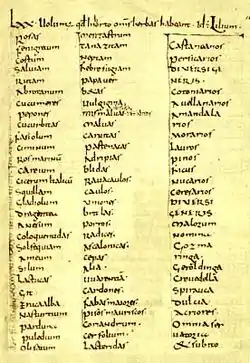 LXX. Volumus qd in horto oms herbas habeant. Id: Lilium.
Rosas
Fenigrecum
Costum
Saluiam
Rutam
Abrotanum
Cucumeres
Pepones
Cucurbitas
Fasiolum
Ciminum
Ros marinum
Careium
Cicerum Italicum
Squillam
Gladiolum
Dragantea
Anesum
Coloquentidas
Solsequiam
Ameum
Silum
Lactucas
Git
Eruca alba
Nasturtium
Parduna
Puledium
Olisatum
mentastrum
Tanazitam
Neptam
Febrefugiam
Papauer
Betas
Uulgigina
Mismaluas
Maluas
Caruitas
Pastenacas
Adripias
Blidas
Rauacaulos
Caulos
Uniones
Britlas
Porros
Radices
Ascalonicas
Cepas
Alia
Uuarentia
Cardones
Fabas maiores
Pisos mauriscos
Coriandrum
Cerfolium
Lacteridas
Castanearios
Persicarios
DIUERSI GE
NERIS
Cotoniarios
Auellanarios
Amandala
rios
Morarios
Lauros
Pinos
Ficus
Nucarios
Ceresarios
DIUERSI
GENERIS
Malorum
Nomina
Gozma
ringa
Geroldinga
Creuedella
Spirauca
Dulcia
Acriores
Omnia ser
uatoria
& subito